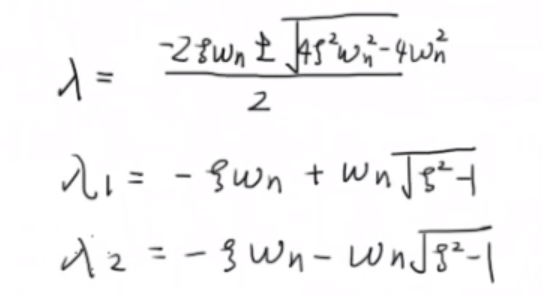 λ = (-2ξωn ± √(4ξ²ωn² - 4ωn²)) / 2
λ1 = - ξωn + ωn√(ξ²-1)
λ2 = - ξωn - ωn√(ξ²-1)